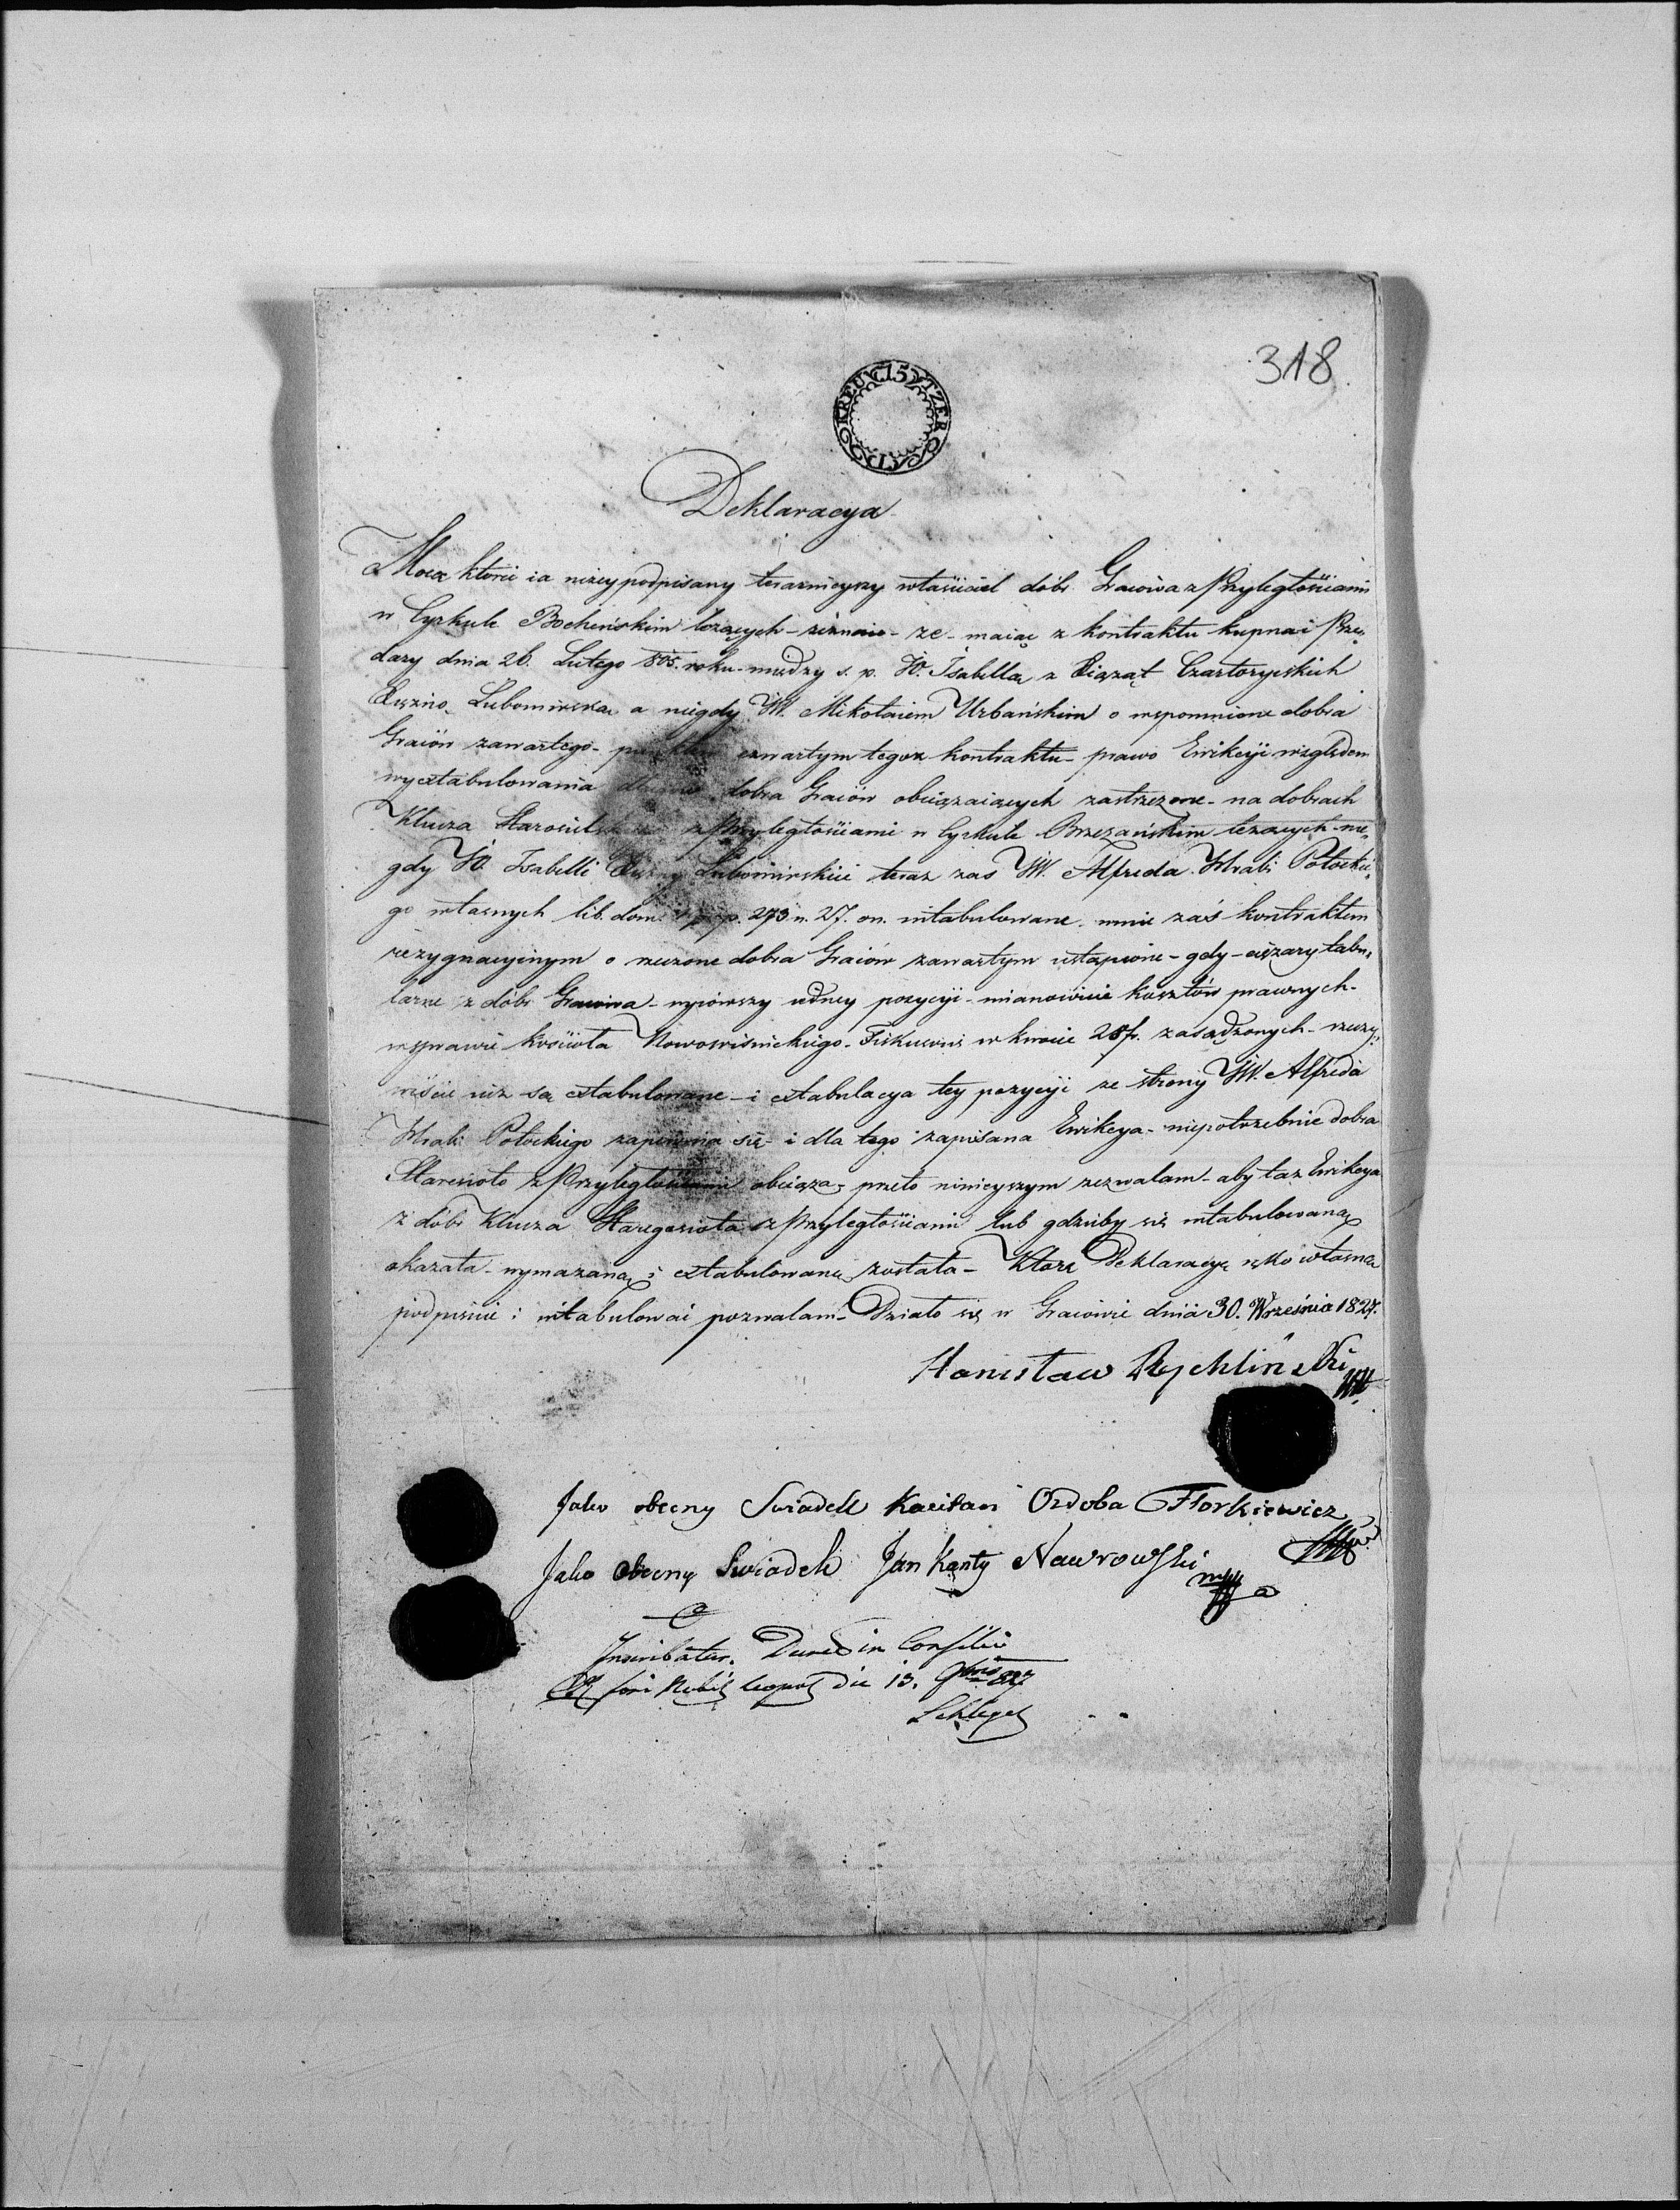 318
15 KREUTZER
Deklaracya
Mocą ktorei ia niżey podpisany teraznieyszy własciciel dóbr Graiowa z Przyległosciami
w Cyrkule Bochenskim leżących – zeznaie – ze – maiąc z kontraktu kupna i Prze„
dazy dnia 26. Lutego 805. roku – między s. p. JO. Isabellą z Xiążąt Czartoryskich
Xiężno Lubomirską a niegdy JW. Mikołaiem Urbańskim o wspomnione dobra
Graiów zawartego – punktem czwartym tegoz kontraktu – prawo Ewikcyi względem
wyextabulowania dobra Graiów obciązaiących zastrzezone – na dobrach
Klucza Starosielskiego z Przyległosciami w Cyrkule Brzezańskim lezących nie„
gdy JO. Isabelli Xiężny Lubomirskiei teraz zas JW. Alfreda Hrabi Potockie„
go własnych lib. dom. p. 273 n. 27. on. intabulowane mnie zaś kontraktem
rezygnacyinym o rzeczone dobra Graiów zawartym ustąpione – gdy – cięzary tabu„
larne z dóbr Graiowa – wyiąwszy iedney pozycyi – mianowicie kosztów prawnych –
w sprawie koscioła Nowowisnickiego – Fiskusowi w kwocie 28 fr. zasądzonych – rzeczy„
wiście iuz są extabulowane – i extabulacya tey pozycyi ze strony JW. Alfreda
Hrabi Potockiego zapewnia się – i dla tego zapisana Ewikcya – niepotrzebnie dobra
Staresioło z Przyległosciami obciąza – przeto ninieyszym zezwalam – aby taz Ewikcya
z dóbr Klucza Staregosioła z Przyległosciami lub gdzieby się intabulowaną
okazała – wymazaną i extabulowaną została – Którą Deklaracyę ręko własną
podpisuie i intabulować pozwalam – Działo się w Graiowie dnia 30. Września 1827.
Stanisław Rychlinski
Jako obecny Swiadek Kaietan Ozdoba Florkiewicz
Jako obecny Swiadek Jan Kanty Nawrowski
Inscribatur. Datum in Consilio
fori Nobil Leopol die 13. 9bris 827
Schlegel